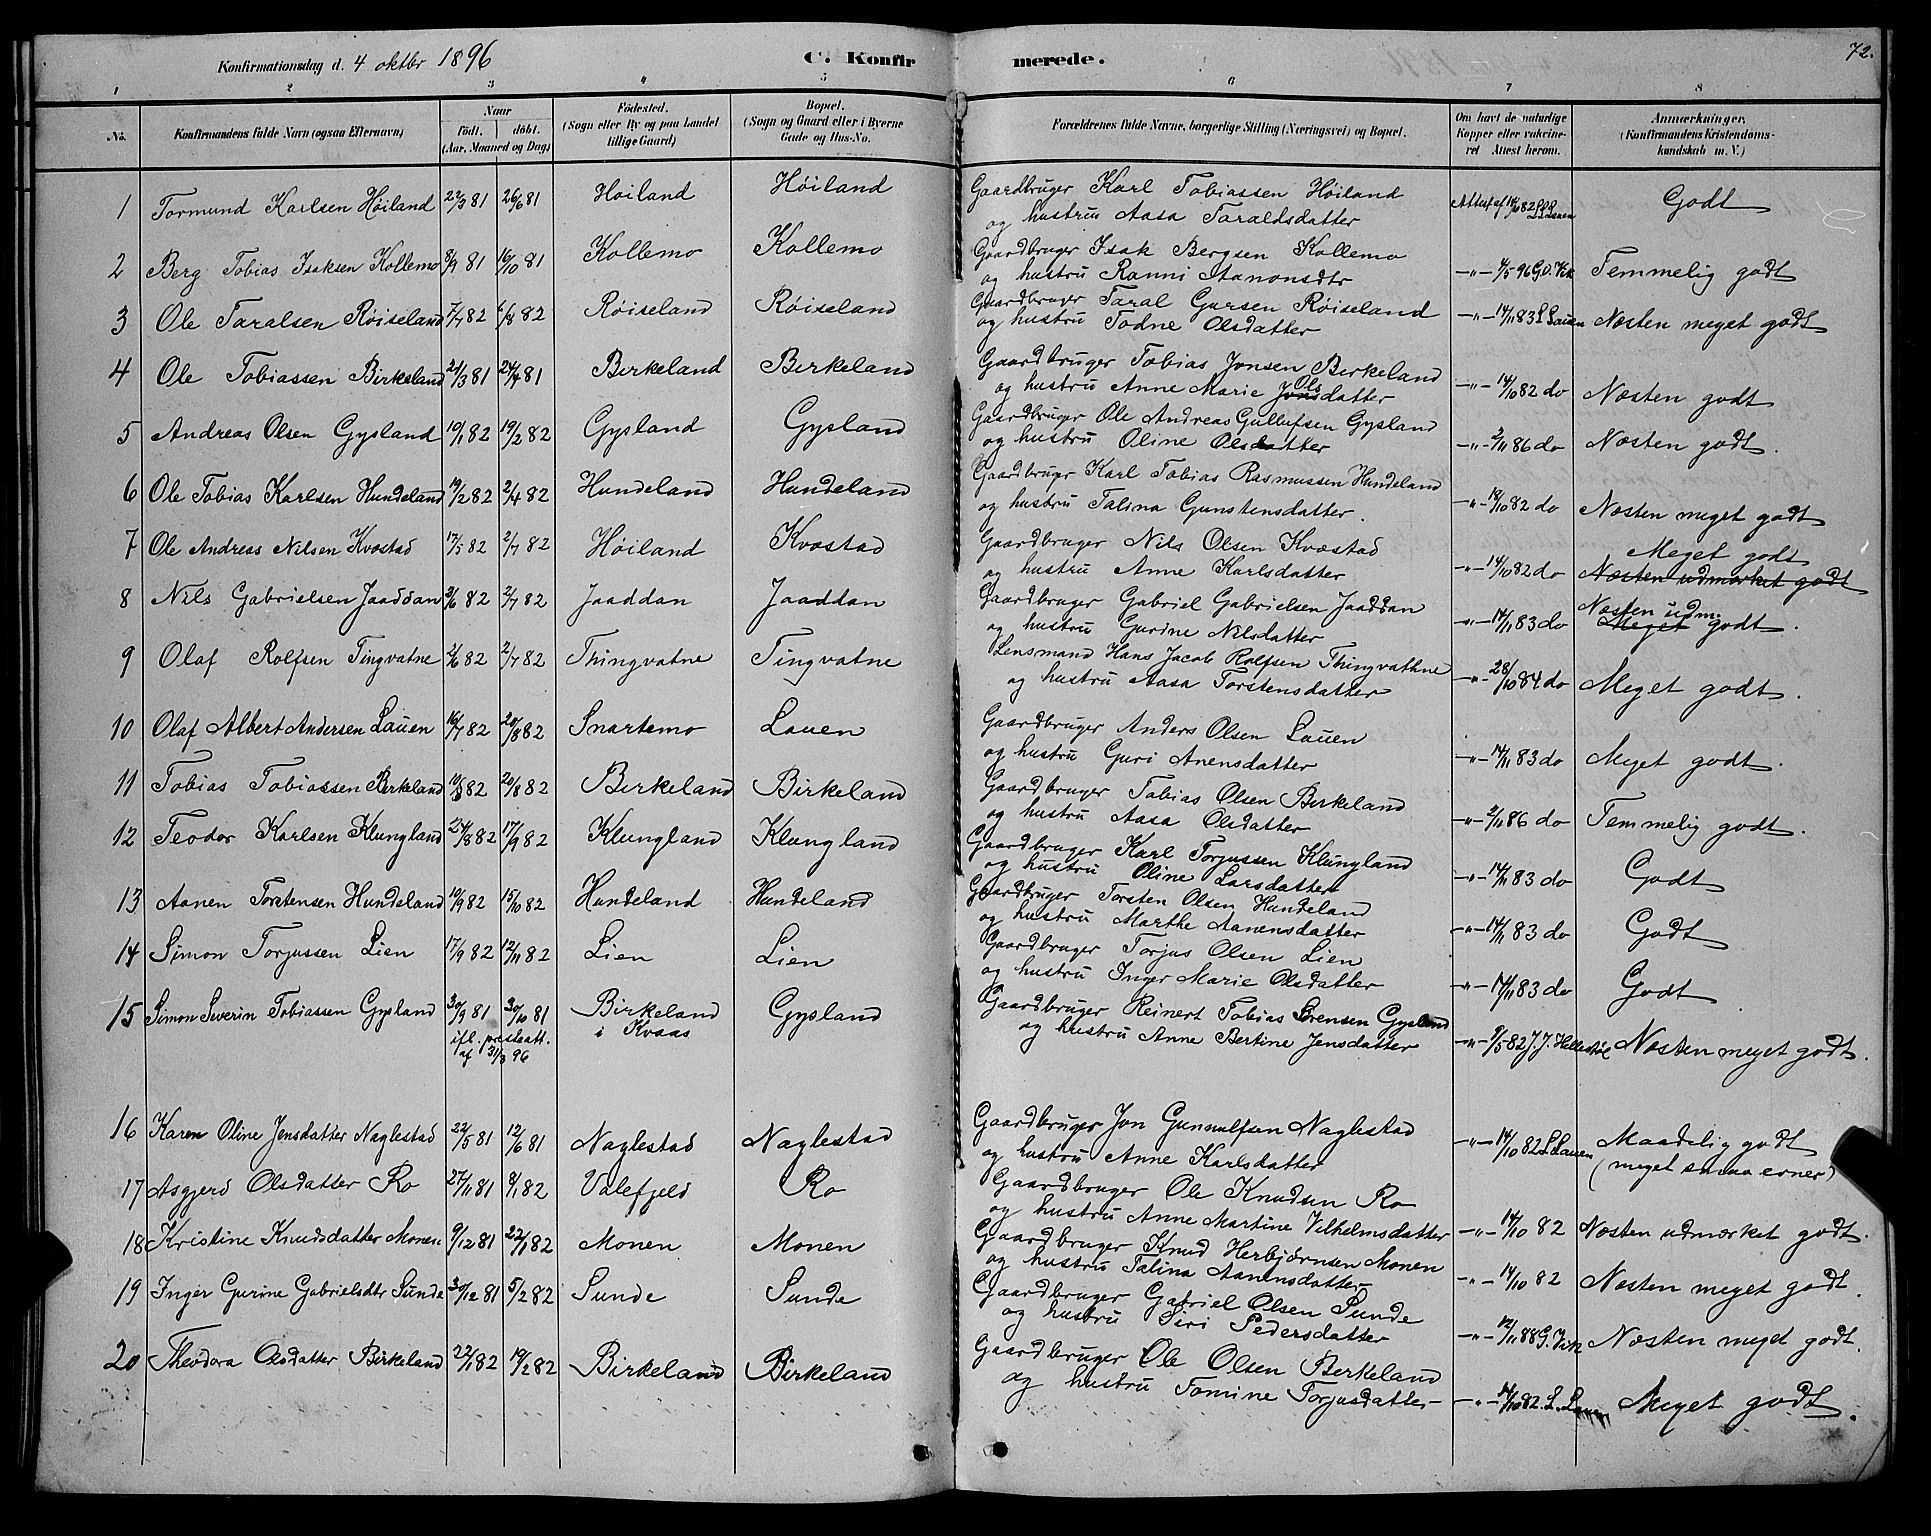 Konfirmationsdag d. 4 oktbr 1896 C. Konfirmerede. 72.
1 2 3 4 5 6 7 8
No. Konfirmandens fulde Navn (ogsaa Efternavn) Naar født. døbt. (Aar, Maaned og Dag) Fødested. (Sogn eller By og paa Landet tillige Gaard) Bopæl. (Sogn og Gaard eller i Byerne Gade og Hus-No. Forældrenes fulde Navne, borgerlige Stilling (Næringsvei) og Bopæl. Om havt de naturlige Kopper eller vakcineret Attest herom. Anmærkninger. (Konfirmandens Kristendomskundskab m. V.)
1 Tormund Karlsen Høiland 22/3 81 26/6 81 Høiland Høiland Gaardbruger Karl Tobiassen Høiland Attest af 14/10 82 L Lauen Godt
og hustru Aasa Taraldsdatter
2 Berg Tobias Isaksen Kollemo 8/9 81 16/10 81 Kollemo Kollemo Gaardbruger Isak Bergsen Kollemo -"- 4/5 96 G.O. Vik Temmelig godt
og hustru Ranni Aanonsdtr
3 Ole Taralsen Røiseland 7/7 82 6/8 82 Røiseland Røiseland Gaardbruger Taral Gursen Røiseland -"- 14/11 83 L Lauen Næsten meget godt
og hustru Todne Olsdatter
4 Ole Tobiassen Birkeland 21/3 81 24/4 81 Birkeland Birkeland Gaardbruger Tobias Jonsen Birkeland -"- 14/10 82 do Næsten godt
og hustru Anne Marie Jons Olsdatter
5 Andreas Olsen Gysland 10/1 82 19/2 82 Gysland Gysland Gaardbruger Ole Andreas Gullufsen Gysland -"- 2/11 86 do Næsten godt.
og hustru Oline Olsdatter
6 Ole Tobias Karlsen Hundeland 19/2 82 2/4 82 Hundeland Hundeland Gaardbrugr Karl Tobias Rasmussen Hundeland -"- 18/10 82 do Næsten meget godt
og hustru Talina Gunstensdatter.
7 Ole Andreas Nilsen Kvæstad 17/5 82 2/7 82 Høiland Kvæstad Gaardbruger Nils Olsen Kvæstad -"- 14/10 82 do Meget godt
og hustru Anne Karlsdatter Næsten udmærket godt
8 Nils Gabrielsen Jaaddan 3/6 82 2/7 82 Jaaddan Jaaddan Gaardbruger Gabriel Gabrielsen Jaaddan -"- 14/11 83 do Næsten udm.
og hustru Gurine Nilsdatter Meget godt.
9 Olaf Rolfsen Tingvatne 2/6 82 2/7 82 Thingvatne Tingvatne Lensmand Hans Jacob Rolfsen Thingvathne -"- 28/10 84 do Meget godt.
og hustru Aasa Torstensdatter
10 Olaf Albert Andersen Lauen 16/7 82 20/8 82 Snartemo Lauen Gaardbruger Anders Olsen Lauen -"- 14/11 83 do Meget godt.
og hustru Guri Anensdatter
11 Tobias Tobiassen Birkeland 82 20/8 82 Birkeland Birkeland Gaardbruger Tobias Olsen Birkeland -"- 2/11 86 do Temmelig godt.
og hustru Aasa Olsdatter
12 Teodor Karlsen Klungland 24/8 82 17/9 82 Klungland Klungland Gaardbruger Karl Torjussen Klungland -"- 14/11 83 do Godt
og hustru Oline Larsdatter
13 Aanen Torstensen Hundeland 10/9 82 15/10 82 Hundeland Hundeland Gaardbruger Torsten Olsen Hundeland -"- 14/11 83 do Godt
og hustru Marthe Aanensdatter
14 Simon Torjussen Lien 17/9 82 12/11 82 Lien Lien Gaardbruger Torjus Olsen Lien -"- 14/11 83 do Godt
og hustru Inger Marie Olsdatter
15 Simon Severin Tobiassen Gysland 30/9 81 30/10 81 Birkeland Gysland Gaardbruger Reinert Tobias Sørensen Gysland -"- 9/5 82 J. J. Hellestøl Næsten meget godt.
ifl. presteatt. af 31/3 96 i Kvaas og hustru Anne Bertine Jensdatter
16 Karen Oline Jensdatter Naglestad 22/5 81 12/6 81 Naglestad Naglestad Gaardbruger Jon Gunnulfsen Naglestad -"- 14/10 82 L Lauen Maadelig godt
og hustru Anne Karlsdatter (meget smaa evner)
17 Asgjerd Olsdatter Ro 27/11 81 8/1 82 Valefjeld Ro Gaardbruger Ole Knudsen Ro -"- 14/10 82 Næsten udmærket godt.
og hustru Anne Martine Vilhelmsdatter
18 Kristine Knudsdatter Monen 9/12 81 22/1 82 Monen Monen Gaardbruger Knud Herbjørnsen Monen -"- 14/10 82 Næsten meget godt.
og hustru Talina Aanensdatter
19 Inger Gurine Gabrielsdtr Sunde 30/12 81 5/2 82 Sunde Sunde Gaardbruger Gabriel Olsen Sunde -"- 12/11 88 G. Vik Næsten meget godt.
og hustru Siri Pedersdatter
20 Theodora Olsdatter Birkeland 22/1 82 19/2 82 Birkeland Birkeland Gaardbruger Ole Olsen Birkeland -"- 14/10 82. L. Lauen Meget godt.
og hustru Tomine Torjusdatter